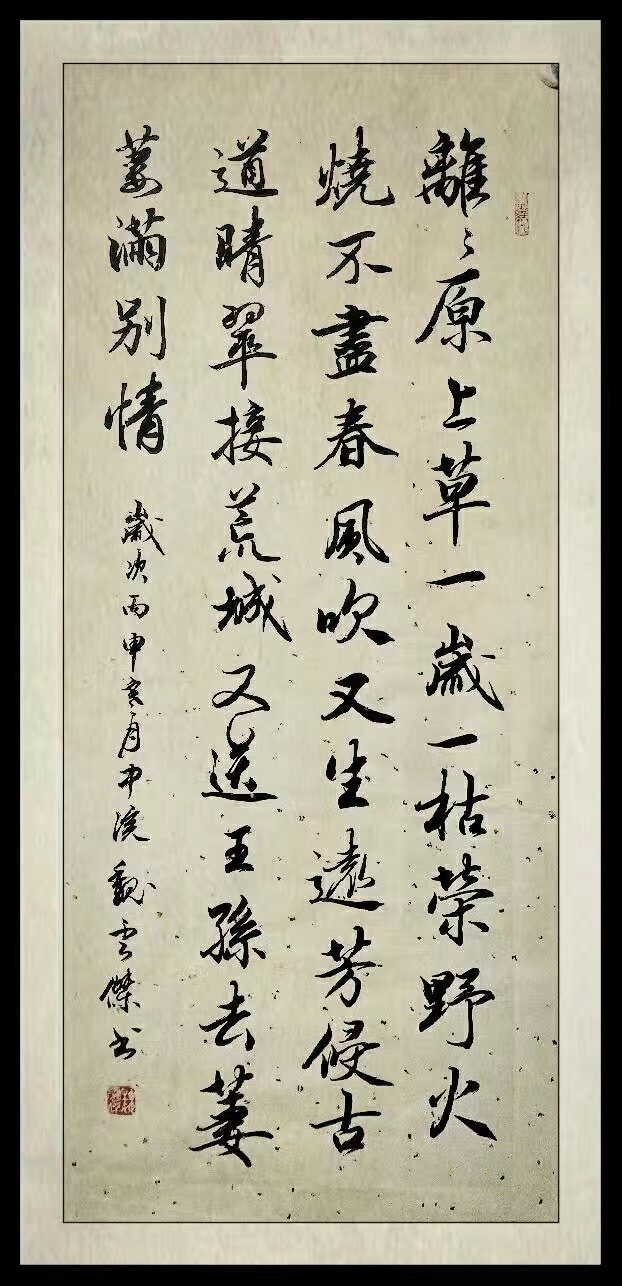 離〻原上草一歲一枯榮野火
燒不盡春風吹又生遠芳侵古
道晴翠接荒城又送王孫去萋
萋滿別情
歲次丙申亥月中浣魏雲傑書